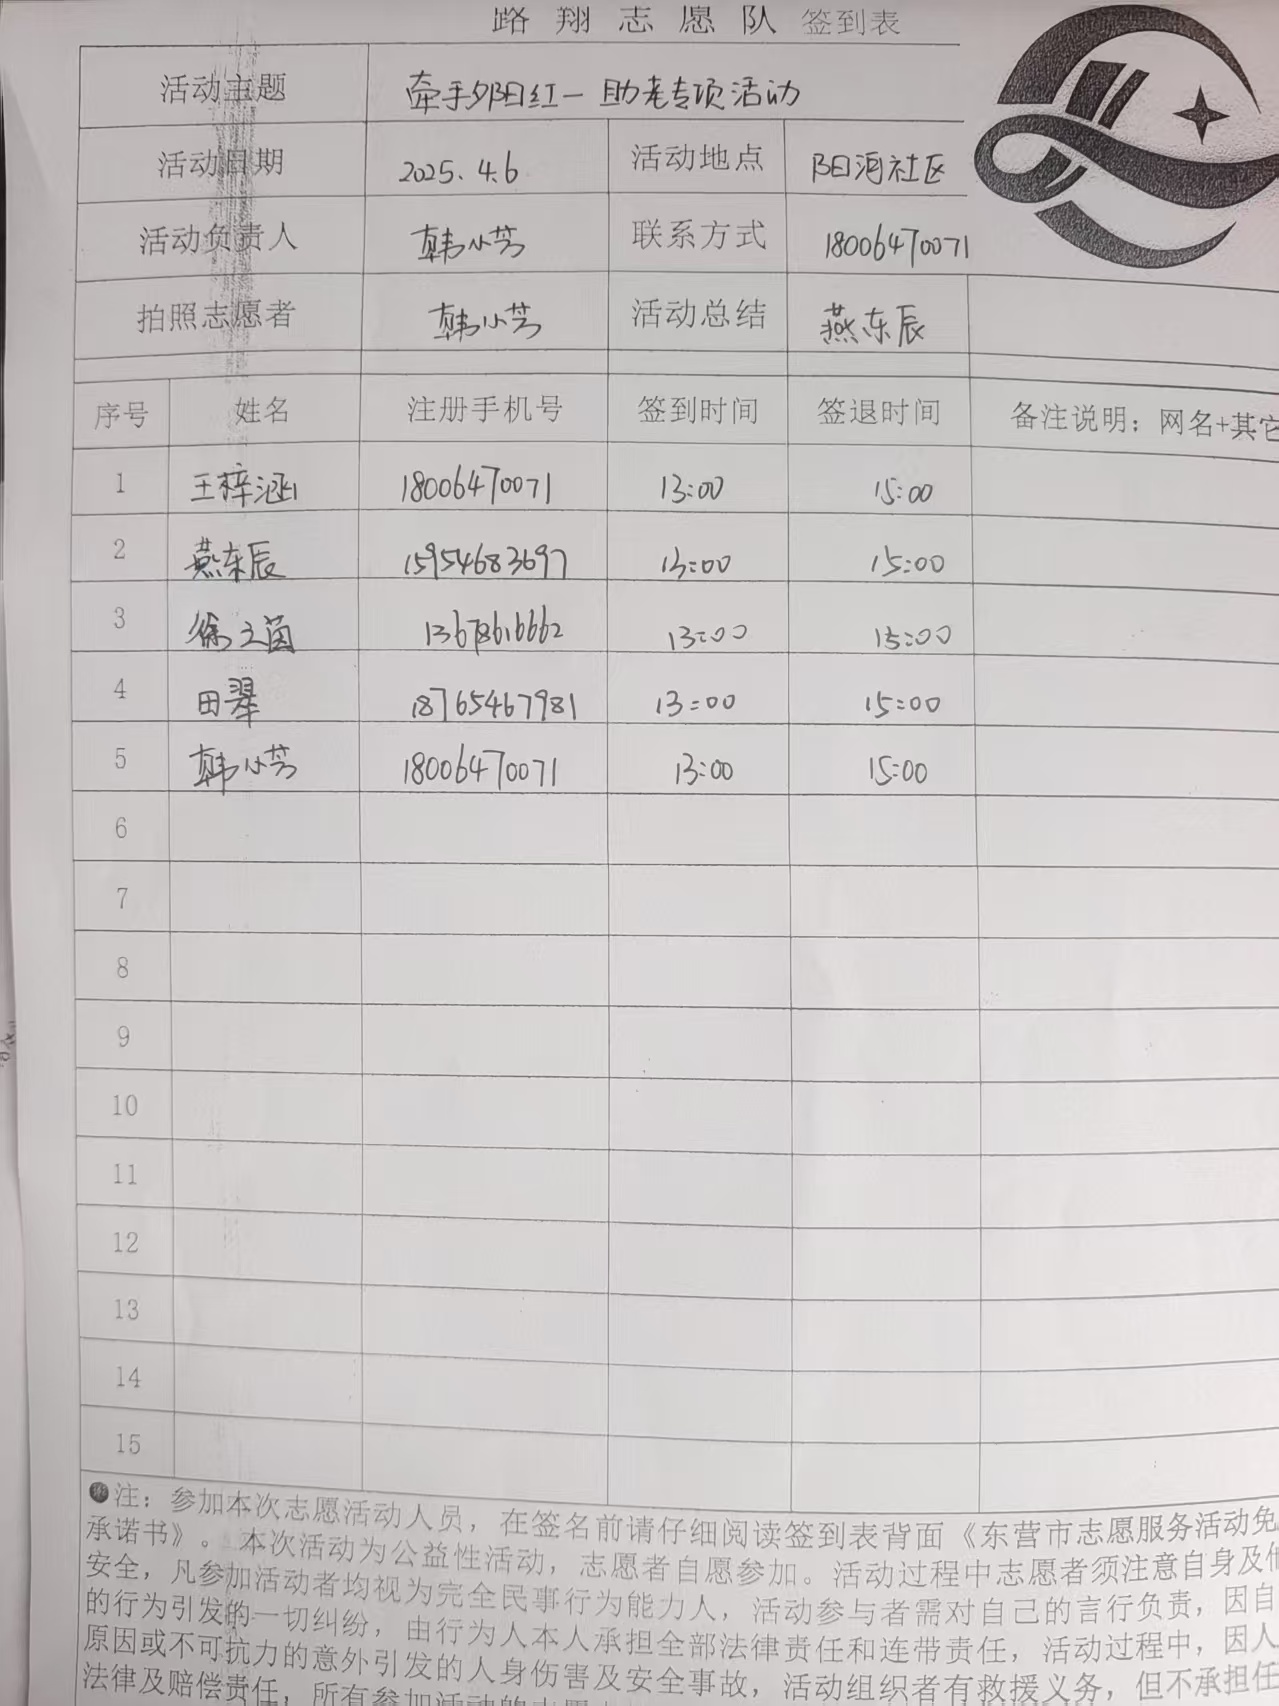 路翔志愿队 签到表
活动主题 牵手夕阳红一助老专项活动
活动日期 2025.4.6 活动地点 阳河社区
活动负责人 韩小芳 联系方式 18006470071
拍照志愿者 韩小芳 活动总结 燕东辰
序号 姓名 注册手机号 签到时间 签退时间 备注说明：网名+其它
1 王梓涵 18006470071 13:00 15:00
2 燕东辰 15954683697 13:00 15:00
3 徐文茵 13678616662 13:00 15:00
4 田翠 18765467981 13:00 15:00
5 韩小芳 18006470071 13:00 15:00
6
7
8
9
10
11
12
13
14
15
注：参加本次志愿活动人员，在签名前请仔细阅读签到表背面《东营市志愿服务活动免
承诺书》。本次活动为公益性活动，志愿者自愿参加。活动过程中志愿者须注意自身及他
安全，凡参加活动者均视为完全民事行为能力人，活动参与者需对自己的言行负责，因自
的行为引发的一切纠纷，由行为人本人承担全部法律责任和连带责任，活动过程中，因人
原因或不可抗力的意外引发的人身伤害及安全事故，活动组织者有救援义务，但不承担任
法律及赔偿责任，所有参加活动的志愿